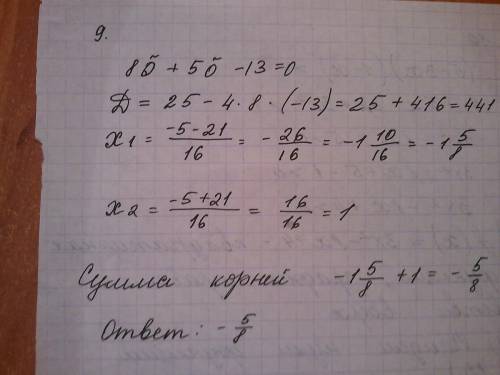 9.
8õ + 5õ - 13 = 0
Д = 25 - 4 · 8 · (-13) = 25 + 416 = 441
x1 = (-5-21)/16 = - 26/16 = -1 10/16 = -1 5/8
x2 = (-5+21)/16 = 16/16 = 1
Сумма корней -1 5/8 + 1 = - 5/8
Ответ: - 5/8